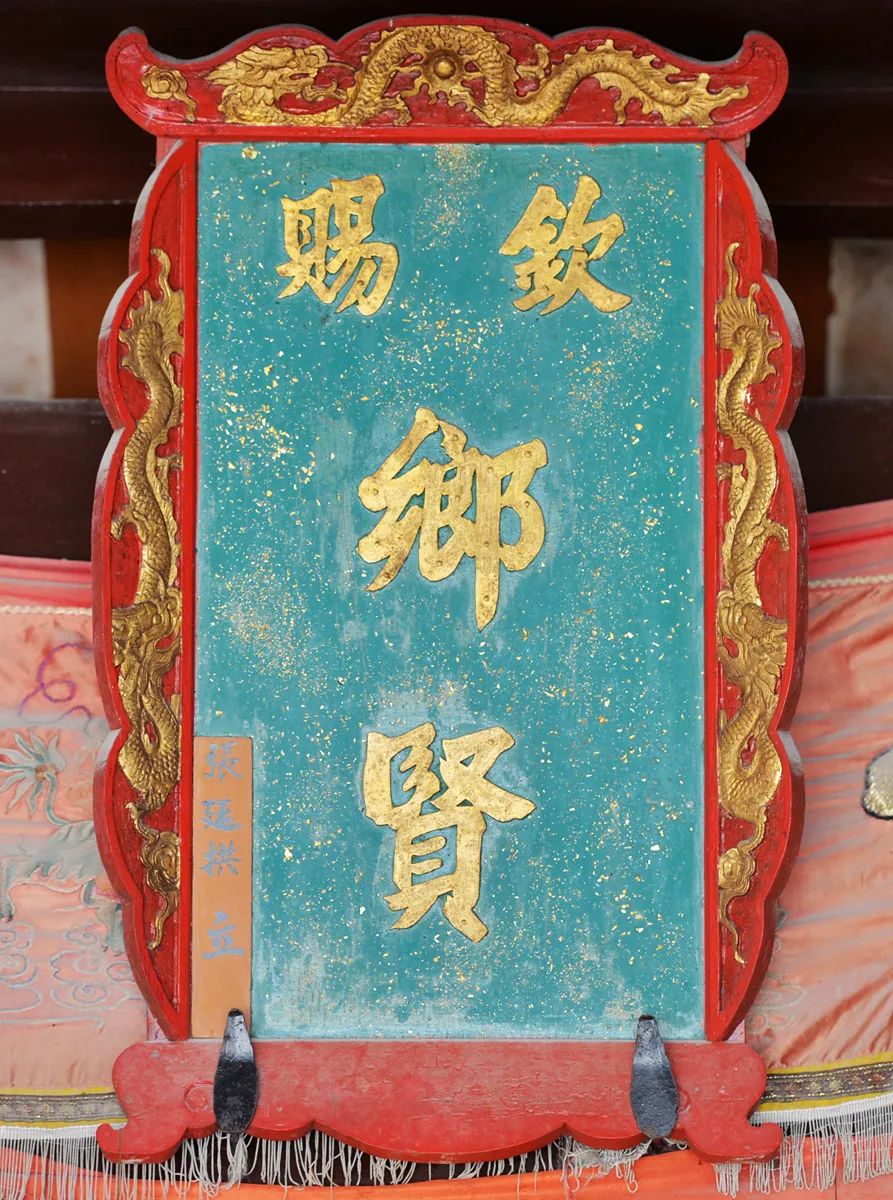 欽賜
鄉賢
張廷拱 立